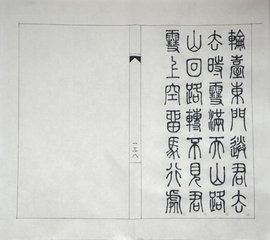 輪臺東門送君去
去時雪滿天山路
山回路轉不見君
雪上空留馬行處
一三八